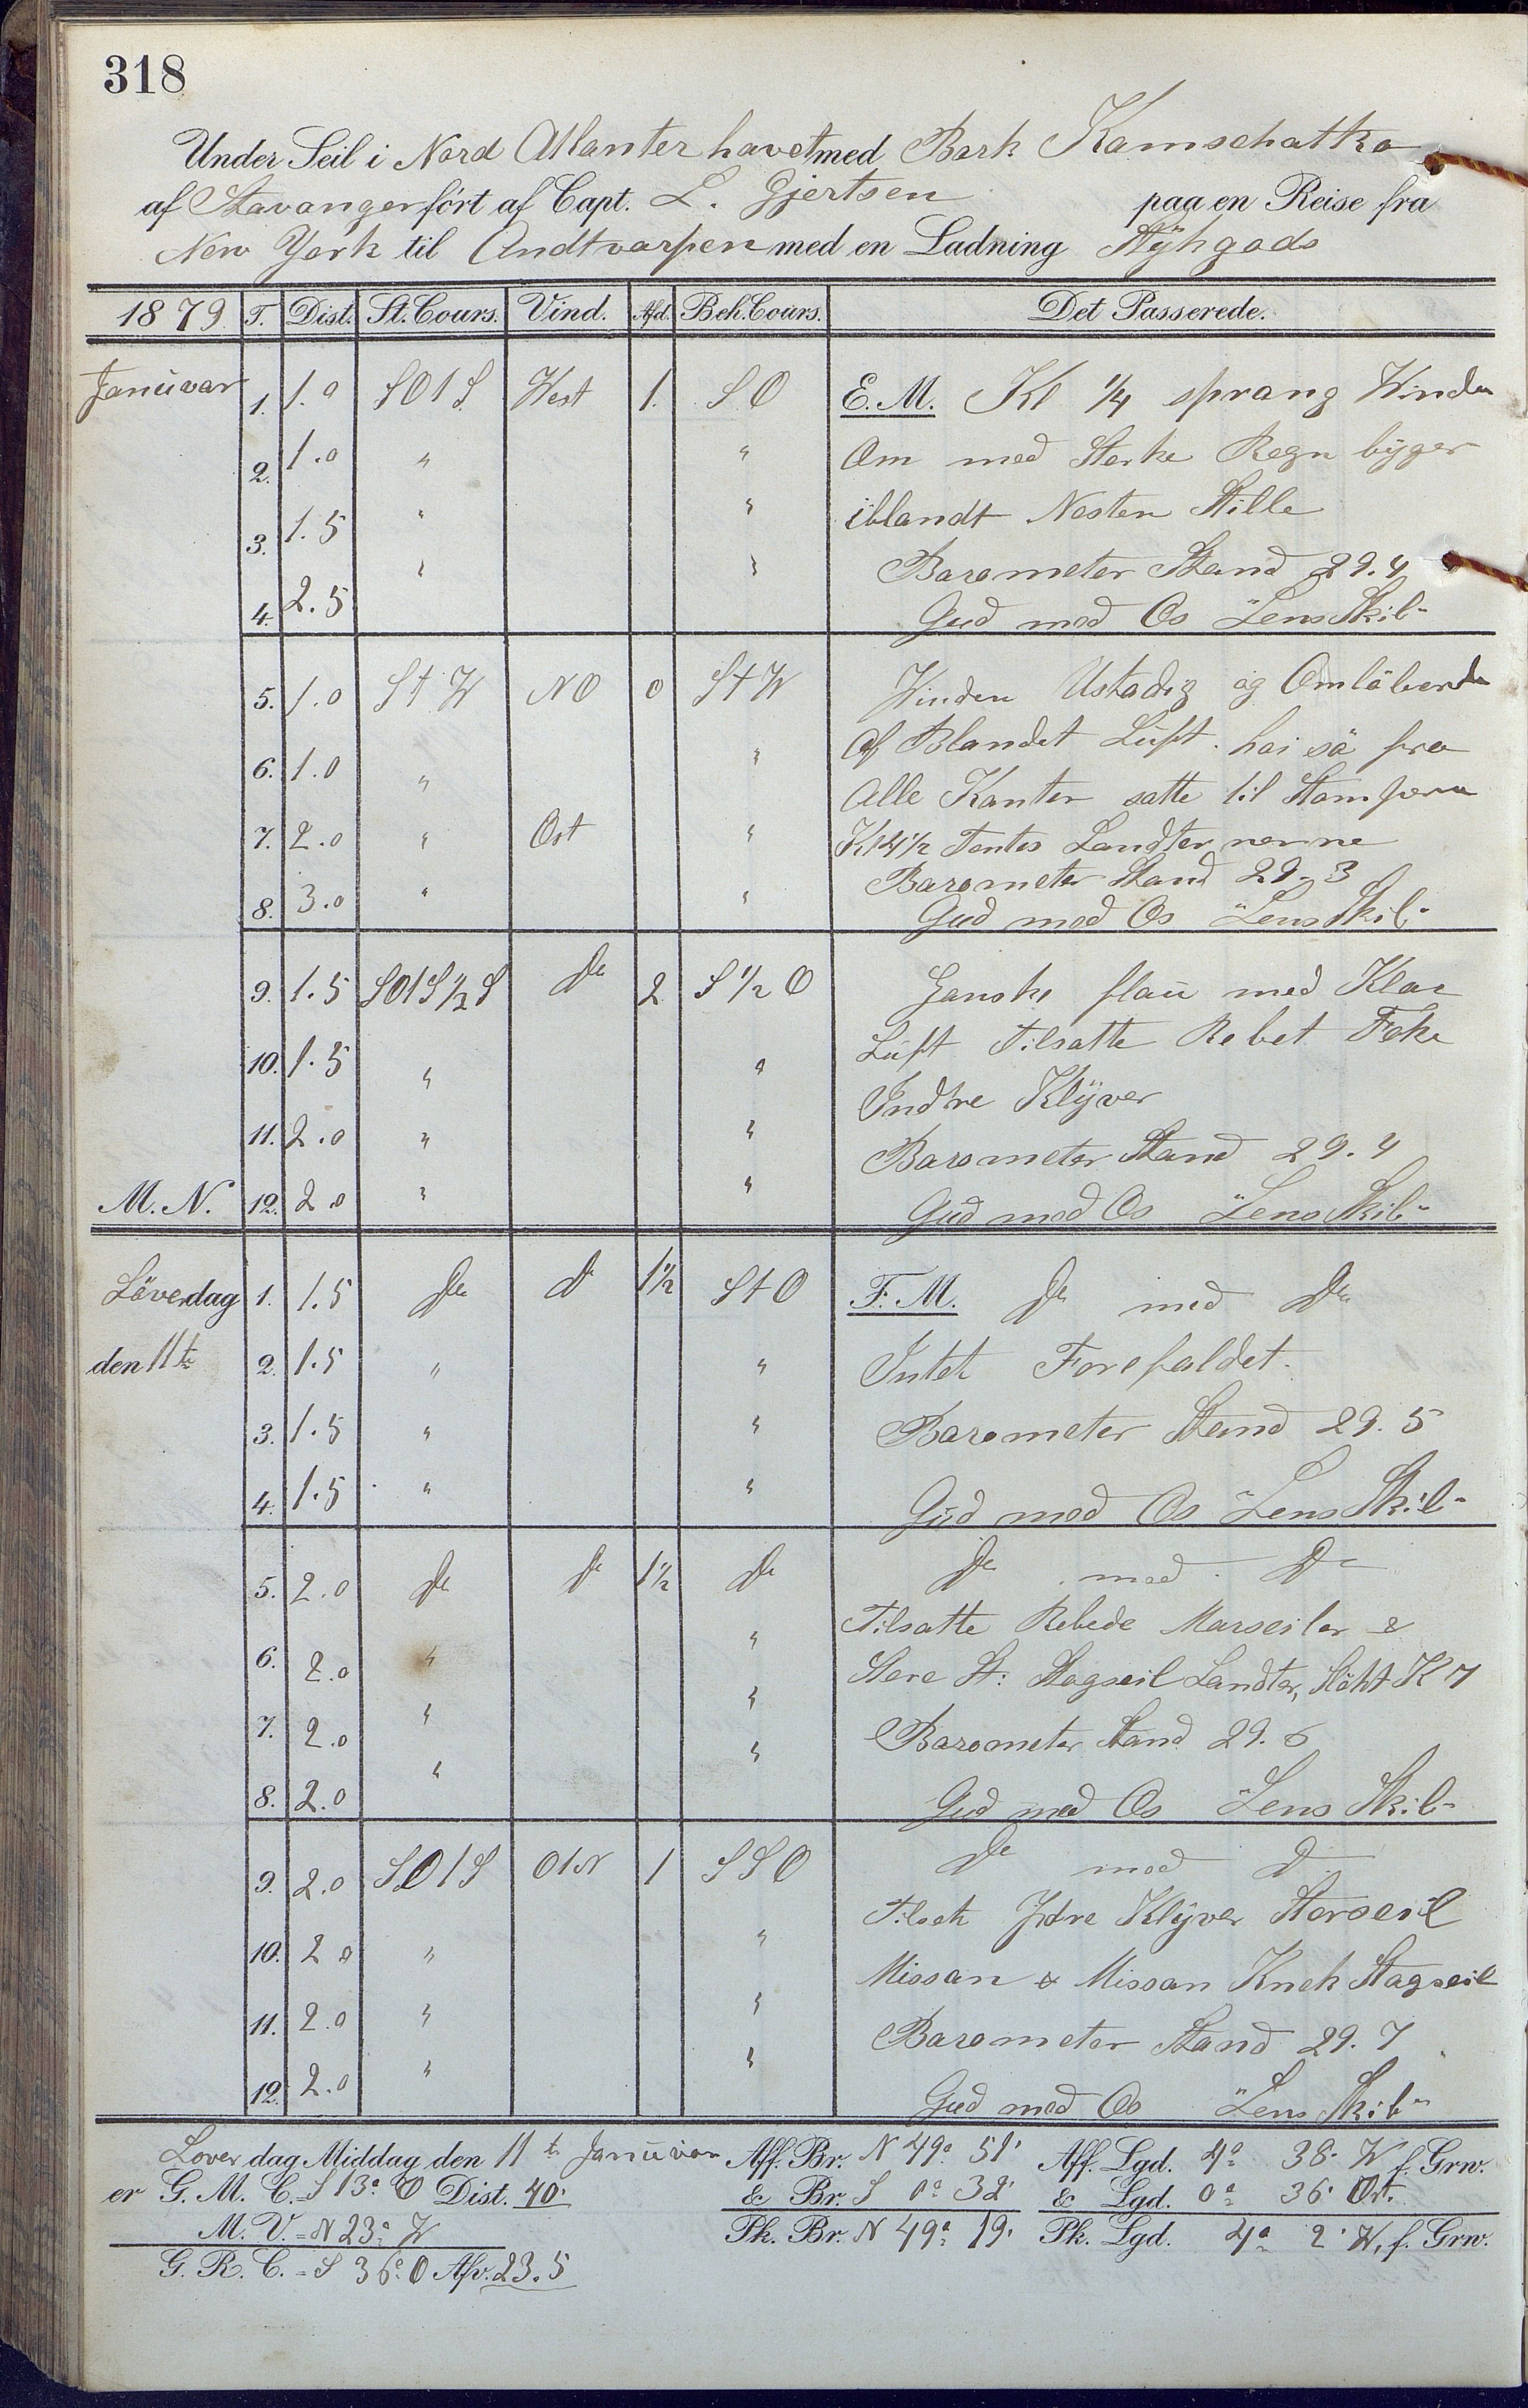 318
Under Seil i Nord Atlanter havet med Bark Kamschatka
af Stavanger fört af Capt. L. Gjertsen paa en Reise fra
New York til Andtvarpen med en Ladning Stÿhgods
1879 T. Dist. St. Cours. Vind. Afd. Beh. Cours. Det Passerede.
Januvar 1. 1.0 SO1S West 1. SO E.M. Kl 1/4 sprang Vinden
2. 1.0 " " Om med Sterke Regn bÿger
3. 1.5 " " iblandt Nesten Stille
4. 2.5 " " Barometer Stand 29.4
Gud med Os Lens Skib
5. 1.0 StW NO 0 StW Vinden Ustadig og Omlöbende
6. 1.0 " " af Blandet Luft. hai sö fra
Alle Kanter satte til Stomfern
7. 2.0 " Ost " Kl 4 1/2 Tentes Landternerne
8. 3.0 " " Barometer Stand 29-3
Gud med Os Lens Skib
9. 1.5 SO1S 1/2 S Do 2 S 1/2 O Ganske flau med Klar
10. 1.5 " " Luft Tilsatte Rebet Foke
11. 2.0 " " Indre Klÿver
Barometer Stand 29.4
M.N. 12. 2.0 " " Gud med Os Lens Skib
Löverdag 1. 1.5 Do Do 1 1/2 StO F.M. Do med Do
den 11te 2. 1.5 " " Intet Forefaldet.
3. 1.5 " " Barometer Stand 29.5
4. 1.5 " " Gud med Os Lens Skib
5. 2.0 Do Do 1 1/2 Do Do med Do
Tilsatte Rebede Marseiler &
6. 2.0 " " Store St: Stagseil Landter, Slökt K 7
7. 2.0 " " Barometer Stand 29.6
8. 2.0 " " Gud med Os Lens Skib
9. 2.0 SO1S O1N 1 SSO Do med Do
Tilset Ydre Klÿver Storseil
10. 2.0 " " Missan & Missan Knek Stagseil
11. 2.0 " " Barometer Stand 29.7
12. 2.0 " " Gud med Os Lens Skib
Lover dag Middag den 11te Januvar Aff. Br. N 49° 51' Aff. Lgd. 4° 38' W f. Grw.
er G. M. C. = S 13° O Dist. 40' & Br. S 0° 32' & Lgd. 0° 36' Ost.
M. V. = N 23° W Pk. Br. N 49° 19' Pk. Lgd. 4° 2' W, f. Grw.
G. R. C. = S 36° O Afv. 23.5